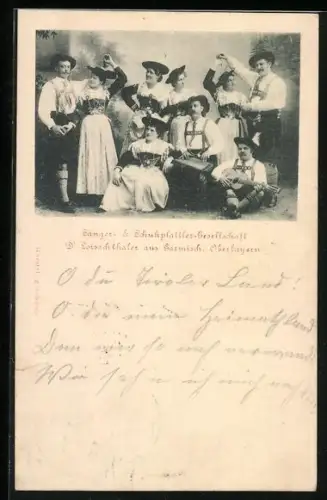 Sänger- & Schuhplattler-Gesellschaft
D' Loisachthaler aus Garmisch, Oberbayern
O du Tiroler Land!
O du mein Heimathland
Dem wir so nah verwandt
Wie sehn ich mich nach